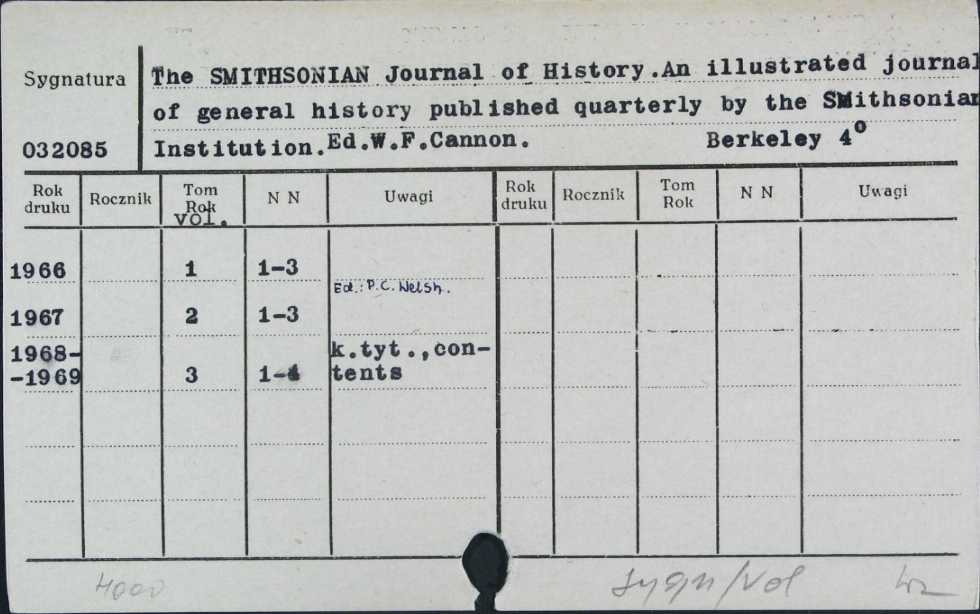 Sygnatura
The SMITHSONIAN Journal of History.An illustrated journal
of general history published quarterly by the SMithsonian
032085
Institution.Ed.W.F.Cannon. Berkeley 4º
Rok druku Rocznik Tom Rok vol. N N Uwagi Rok druku Rocznik Tom Rok N N Uwagi
1966 1 1-3
Ed.: P.C. Welsh.
1967 2 1-3
1968- k.tyt.,con-
-1969 3 1-4 tents
4000 sygn/vol